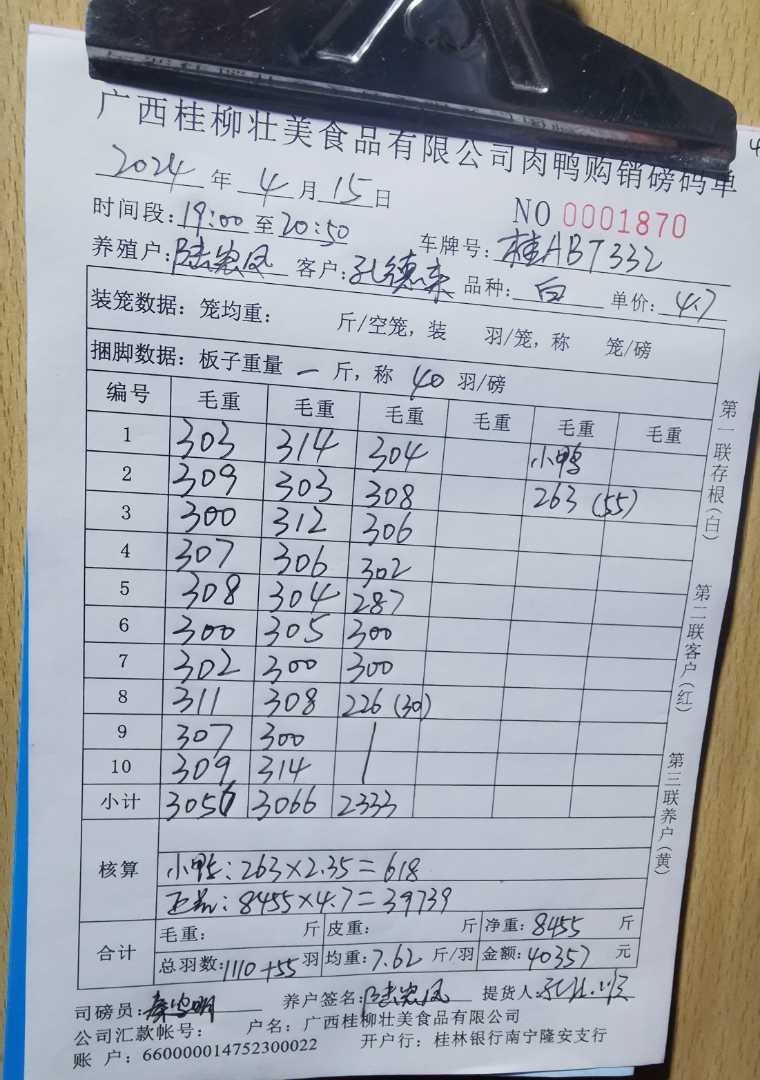 广西桂柳壮美食品有限公司肉鸭购销磅码单
2024年4月15日
NO 0001870
时间段:19:00至20:50 车牌号:桂ABT332
养殖户:陆 凤 客户:孔德来 品种:白 单价:4.7
装笼数据:笼均重: 斤/空笼,装 羽/笼,称 笼/磅
捆脚数据:板子重量 一 斤,称 40 羽/磅
编号 毛重 毛重 毛重 毛重 毛重 毛重
1 303 314 304 小鸭
2 309 303 308 263 (55)
3 300 312 306
4 307 306 302
5 308 304 287
6 300 305 300
7 302 300 300
8 311 308 226 (30)
9 307 300 /
10 309 314 /
小计 3056 3066 2333
核算
小鸭:263×2.35=618
正品:8455×4.7=39739
合计
毛重: 斤 皮重: 斤 净重:8455 斤
总羽数:1110+55 羽 均重:7.62 斤/羽 金额:40357 元
司磅员: 养户签名:陆 凤 提货人:
公司汇款帐号: 户名:广西桂柳壮美食品有限公司
账 户:660000014752300022 开户行:桂林银行南宁隆安支行
第一联存根(白)
第二联客户(红)
第三联养户(黄)
4